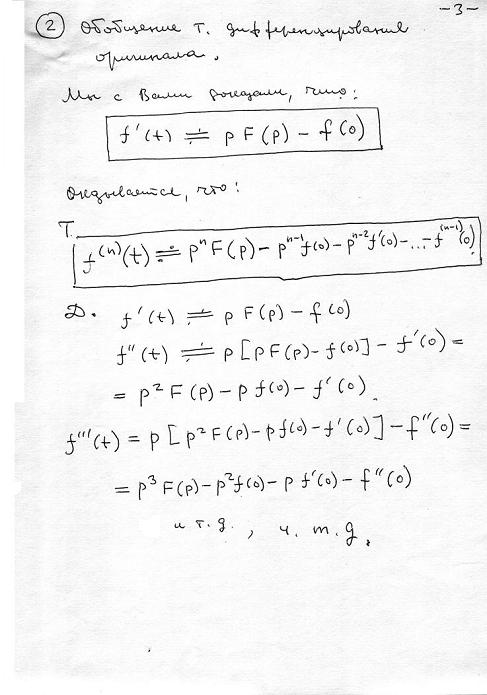 -3-
② Обобщение т. дифференцирования
оригинала.
Мы с Вами доказали, что:
f'(t) ≓ p F(p) - f(0)
Оказывается, что:
Т.
f⁽ⁿ⁾(t) ≓ pⁿ F(p) - pⁿ⁻¹f(0) - pⁿ⁻²f'(0) - ... - f⁽ⁿ⁻¹⁾(0)
Д. f'(t) ≓ p F(p) - f(0)
f''(t) ≓ p [p F(p) - f(0)] - f'(0) =
= p² F(p) - p f(0) - f'(0).
f'''(t) = p [p² F(p) - p f(0) - f'(0)] - f''(0) =
= p³ F(p) - p² f(0) - p f'(0) - f''(0)
и т.д., ч.т.д.